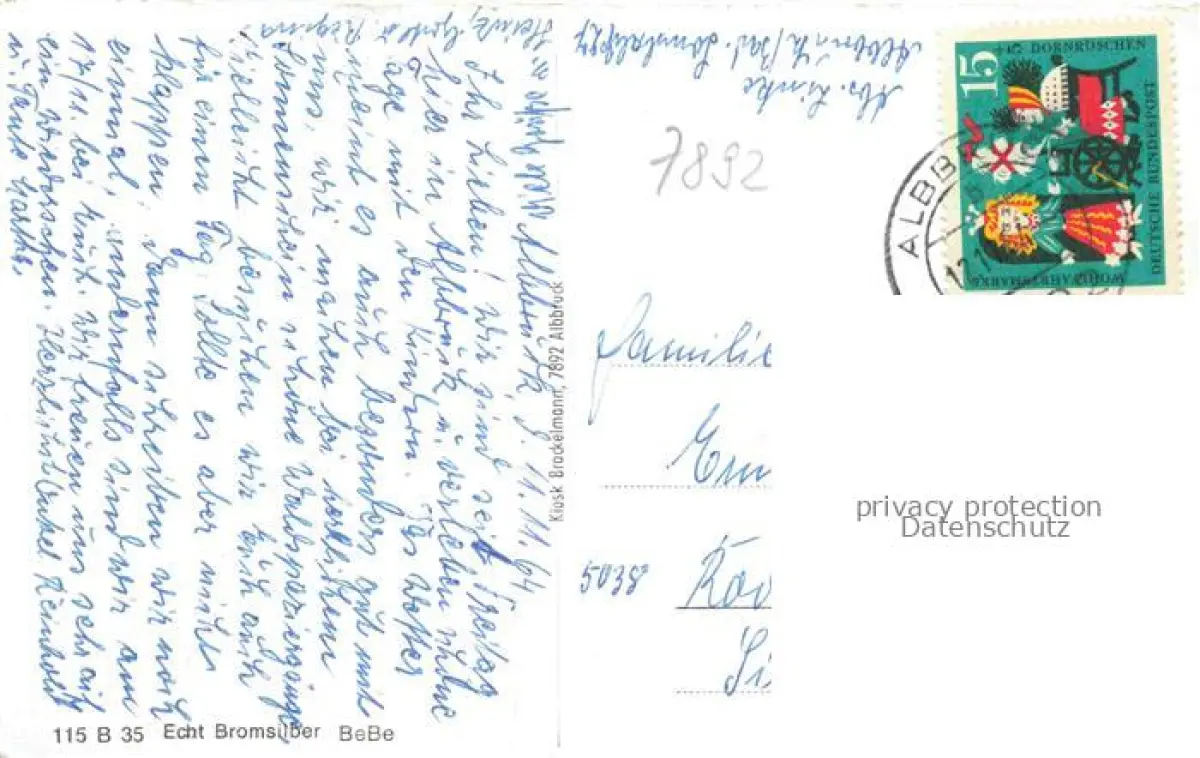 Albbruck, d. 11.11.64
Ihr Lieben! Wir sind seit Freitag
hier in Albbruck u. verleben schöne
Tage mit den Kindern. Das Wetter
meint es auch besonders gut mit
uns, wir machen bei herrlichem
Sonnenschein schöne Spaziergänge
Vielleicht besuchen wir Euch auch
für einen Tag. Sollte es aber nicht
klappen, dann schreiben wir noch
einmal, jedenfalls sind wir am
17/11. bei Euch. Wir freuen uns sehr auf
ein Wiedersehen. Herzlichst Onkel Reinhold
u. Tante Martha.
Heinz, Gerda & Regina
Abs. Linke
Albbruck/Bad.
7892
15
+5
DORNRÖSCHEN
DEUTSCHE BUNDESPOST
WOHLFAHRTSMARKE
ALBB
Familie
5038
Kiosk Brockelmann, 7892 Albbruck
115 B 35 Echt Bromsilber BeBe
privacy protection
Datenschutz